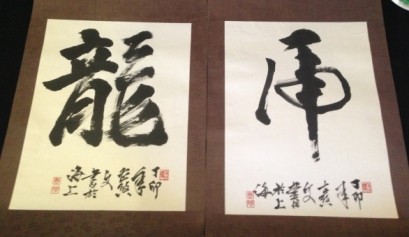 龍
丁卯
年
文
書於
海上
虎
丁卯
年
文
書
於上
海